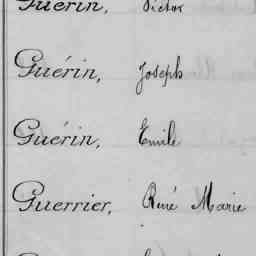 Guérin, Victor
Guérin, Joseph
Guérin, Emile
Guerrier, René Marie